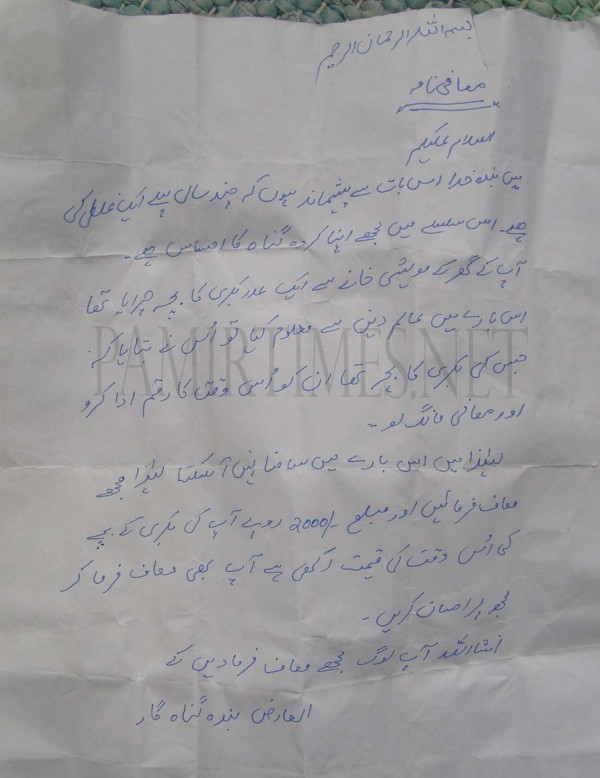 بسم اللہ الرحمان الرحیم
معافی نامہ
السلام علیکم
میں بندہ خدا اس بات سے پشیماند ہوں کہ چند سال پہلے ایک غلطی کی
ہے۔ اس سلسلے میں مجھے اپنا کردہ گناہ کا احساس ہے۔
آپ کے گھر کے مویشی خانے سے ایک عدد بکری کا بچہ چرایا تھا
اس بارے میں عالم دین سے معلوم کیا تو اُس نے بتایا کہ
جس کی بکری کا بچہ تھا ان کو اُس وقت کا رقم ادا کرو
اور معافی مانگ لو۔
لہٰذا میں اس بارے میں سامنا نہیں آسکتا لہٰذا مجھے
معاف فرمائیں اور مبلغ 2000/- روپے آپ کی بکری کے بچے
کی اُس وقت کی قیمت رکھی ہے آپ بھی معاف فرما کر
مجھ پر احسان کریں۔
انشااللہ آپ لوگ مجھے معاف فرما دیں گے
العارض بندہ گناہ گار
PAMIRTIMES.NET